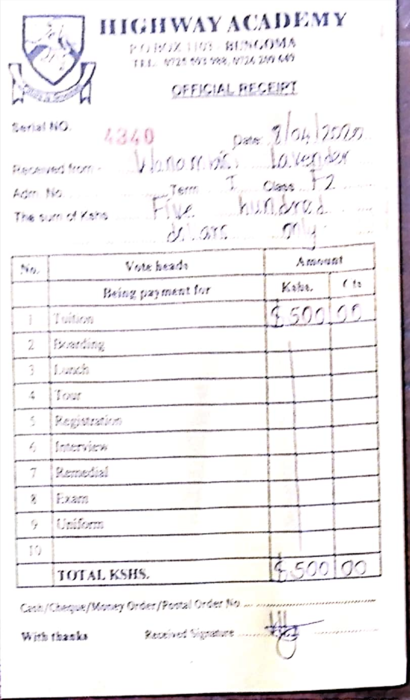 HIGHWAY ACADEMY
P.O BOX BUNGOMA
TEL:
OFFICIAL RECEIPT
Serial NO. 4340
Date: 8/04/2020
Received from - Lavender
Adm. No. Term I Class F2
The sum of Kshs Five hundred
dolars only
No. Vote heads Amount
Being payment for Kshs. Cts
1 Tuition $500 00
2 Boarding
3 Lunch
4 Tour
5 Registration
6 Interview
7 Remedial
8 Exam
9 Uniform
10
TOTAL KSHS. $500 00
Cash/Cheque/Money Order/Postal Order No
With thanks Received Signature